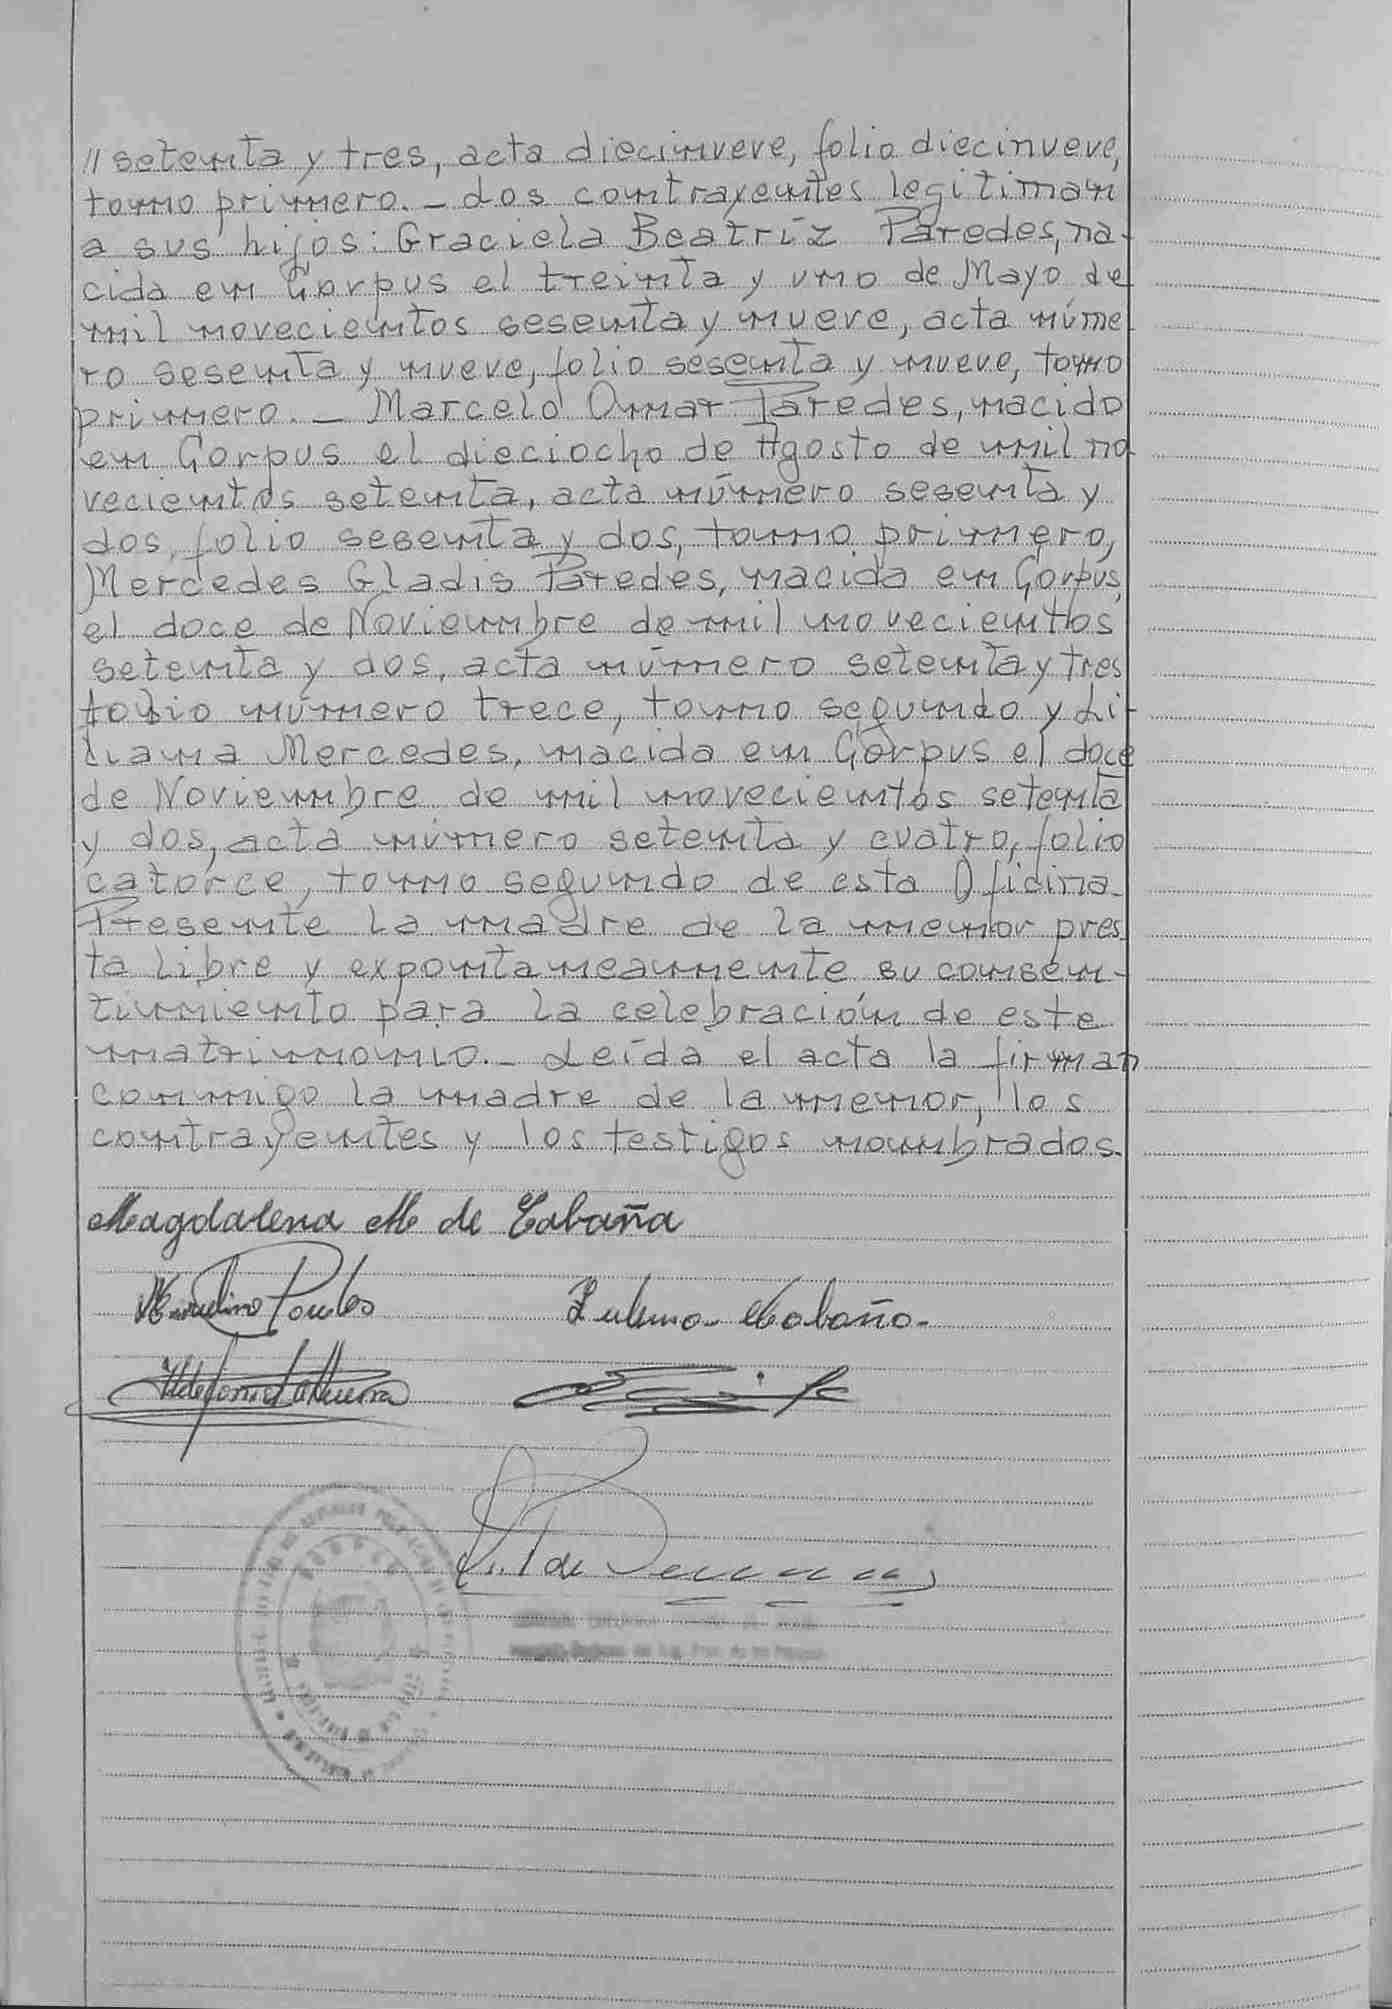 // setenta y tres, acta diecinueve, folio diecinueve,
tomo primero. _ Los contrayentes legitiman
a sus hijos: Graciela Beatríz Paredes, na-
cida en Corpus el treinta y uno de Mayo de
mil novecientos sesenta y nueve, acta núme
ro sesenta y nueve, folio sesenta y nueve, tomo
primero. _ Marcelo Omar Paredes, nacido
en Corpus el dieciocho de Agosto de mil no
vecientos setenta, acta número sesenta y
dos, folio sesenta y dos, tomo primero,
Mercedes Gladis Paredes, nacida en Corpus,
el doce de Noviembre de mil novecientos
setenta y dos, acta número setenta y tres
folio número trece, tomo segundo y Li-
liana Mercedes, nacida en Corpus el doce
de Noviembre de mil novecientos setenta
y dos, acta número setenta y cuatro, folio
catorce, tomo segundo de esta Oficina.
Presente la madre de la menor pres
ta libre y expontaneamente su consen-
timiento para la celebración de este
matrimonio. _ Leída el acta la firman
conmigo la madre de la menor, los
contrayentes y los testigos nombrados.
Magdalena M de Cabaña
Zulema Cabaña